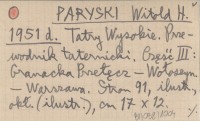 PARYSKI Witold H.
1951 d. Tatry Wysokie. Prze-
wodnik taternicki. Część III:
Granacka Przełęcz – Wołoszyn.
– Warszawa. Stron 91, ilustr.,
okł. (ilustr.), cm 17 x 12.